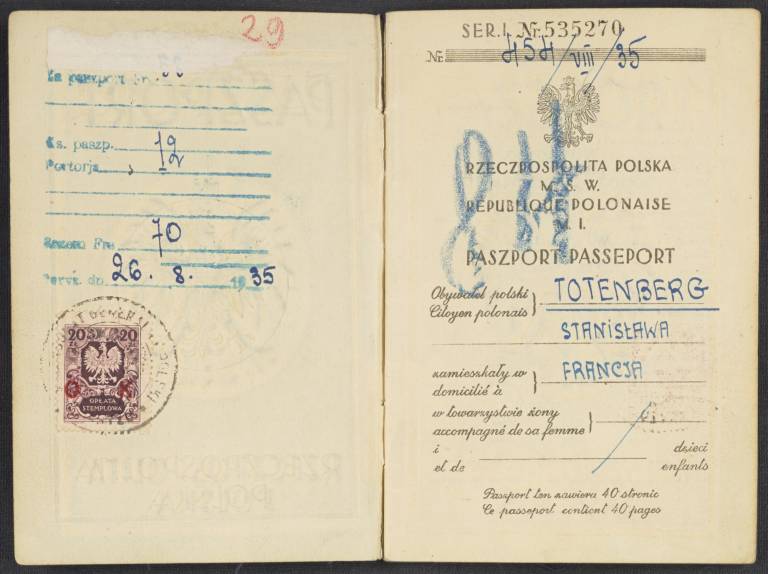 29
Za paszport Nr.
Ks. paszp. 12
Portorja
Razem Frs 70
Paryż dn. 26. 8. 1935
20 20
OPŁATA
STEMPLOWA
SER. I. Nr. 535270
Nr. 454/VIII/35
RZECZPOSPOLITA POLSKA
M. S. W.
REPUBLIQUE POLONAISE
M. I.
PASZPORT-PASSEPORT
Obywatel polski TOTENBERG
Citoyen polonais
STANISŁAWA
zamieszkały w FRANCJA
domicilié à
w towarzystwie żony
accompagné de sa femme
i dzieci
et de enfants
Paszport ten zawiera 40 stronic
Ce passeport contient 40 pages